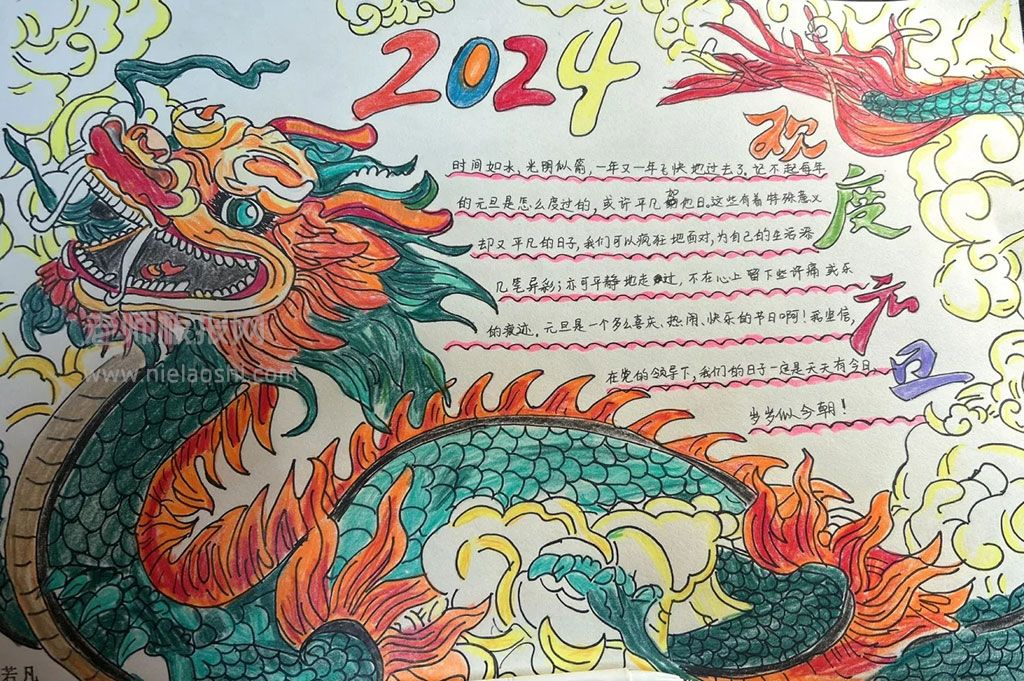 2024
欢度元旦
时间如水,光阴似箭,一年又一年飞快地过去了.记不起每年
的元旦是怎么度过的,或许平凡如他日.这些有着特殊意义
却又平凡的日子,我们可以疯狂地面对,为自己的生活添
几笔异彩;亦可平静地走过,不在心上留下些许痛或乐
的痕迹.元旦是一个多么喜庆、热闹、快乐的节日啊!我坚信,
在党的领导下,我们的日子一定是天天有今日,
岁岁似今朝!
www.nielaoshi.com
若凡